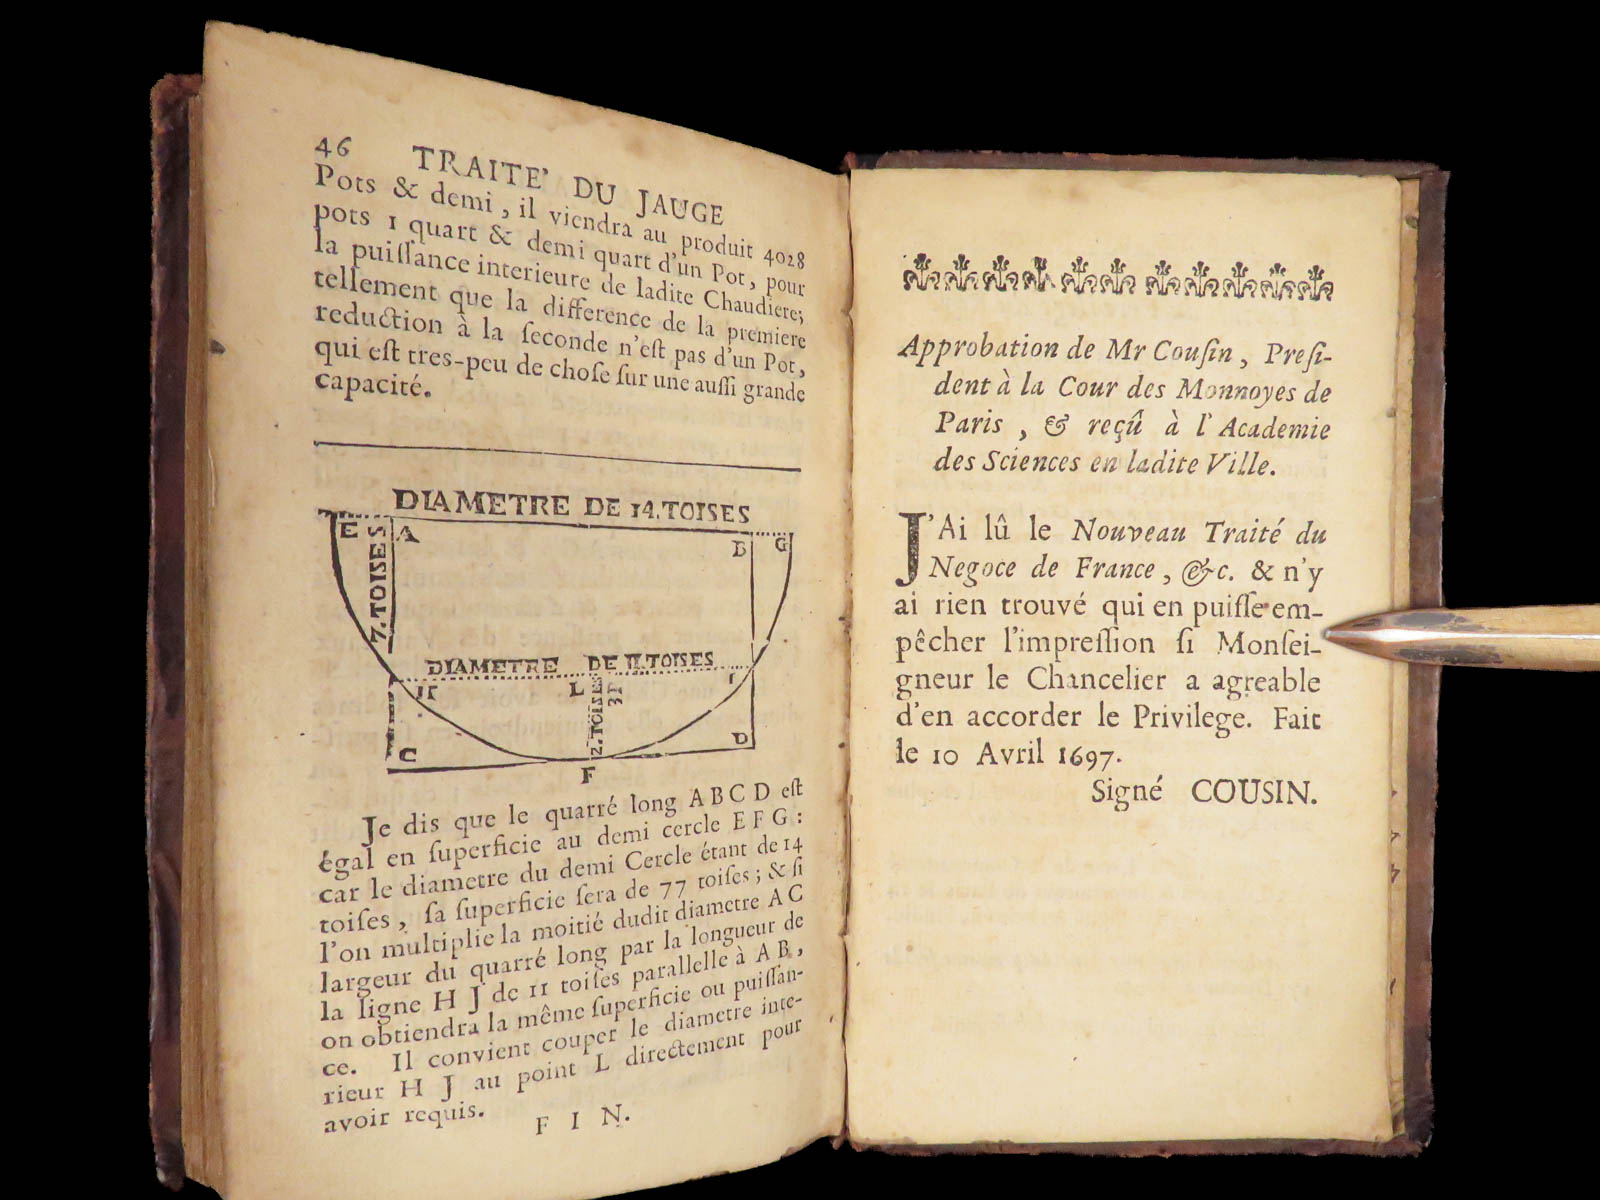 46 TRAITE' DU JAUGE
Pots & demi, il viendra au produit 4028
pots 1 quart & demi quart d'un Pot, pour
la puiſſance interieure de ladite Chaudiere;
tellement que la difference de la premiere
reduction à la ſeconde n'eſt pas d'un Pot,
qui eſt tres-peu de choſe ſur une auſſi grande
capacité.
DIAMETRE DE 14. TOISES
E A B G
7. TOISES
DIAMETRE DE 11. TOISES
L
2. TOISES
C D
F
Je dis que le quarré long A B C D eſt
égal en ſuperficie au demi cercle E F G :
car le diametre du demi Cercle étant de 14
toiſes, ſa ſuperficie ſera de 77 toiſes ; & ſi
l'on multiplie la moitié dudit diametre A C
largeur du quarré long par la longueur de
la ligne H J de 11 toiſes parallelle à A B,
on obtiendra la même ſuperficie ou puiſſan-
ce. Il convient couper le diametre inte-
rieur H J au point L directement pour
avoir requis.
F I N.
Approbation de Mr Couſin, Preſi-
dent à la Cour des Monnoyes de
Paris, & reçû à l'Academie
des Sciences en ladite Ville.
J'Ai lû le Nouveau Traité du
Negoce de France, &c. & n'y
ai rien trouvé qui en puiſſe em-
pêcher l'impreſſion ſi Monſei-
gneur le Chancelier a agreable
d'en accorder le Privilege. Fait
le 10 Avril 1697.
Signé COUSIN.